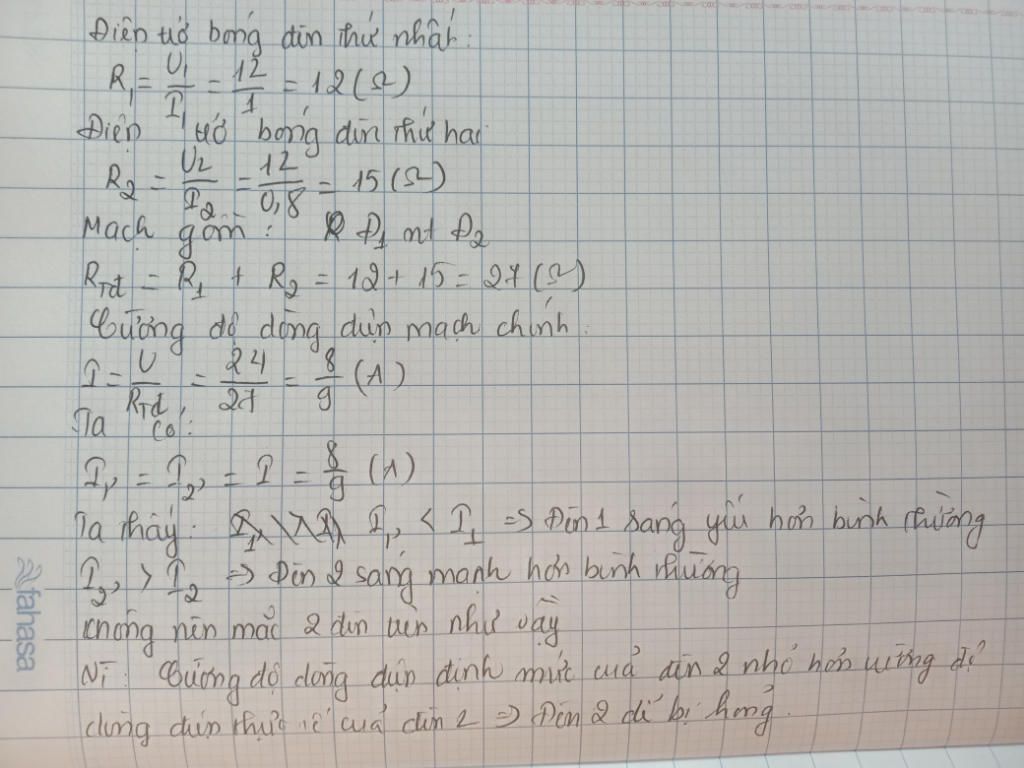 Điện trở bóng đèn thứ nhất:
R₁ = U₁/I₁ = 12/1 = 12 (Ω)
Điện trở bóng đèn thứ hai
R₂ = U₂/I₂ = 12/0,8 = 15 (Ω)
Mạch gồm: Đ₁ nt Đ₂
R_Tđ = R₁ + R₂ = 12 + 15 = 27 (Ω)
Cường độ dòng điện mạch chính:
I = U/R_Tđ = 24/27 = 8/9 (A)
Ta có:
I₁, = I₂, = I = 8/9 (A)
Ta thấy: I₁, < I₁ => Đèn 1 sáng yếu hơn bình thường
I₂, > I₂ => Đèn 2 sáng mạnh hơn bình thường
không nên mắc 2 đèn trên như vậy
Vì: Cường độ dòng điện định mức của đèn 2 nhỏ hơn cường độ
dòng điện thực tế của đèn 2 => Đèn 2 dễ bị hỏng.
fahasa